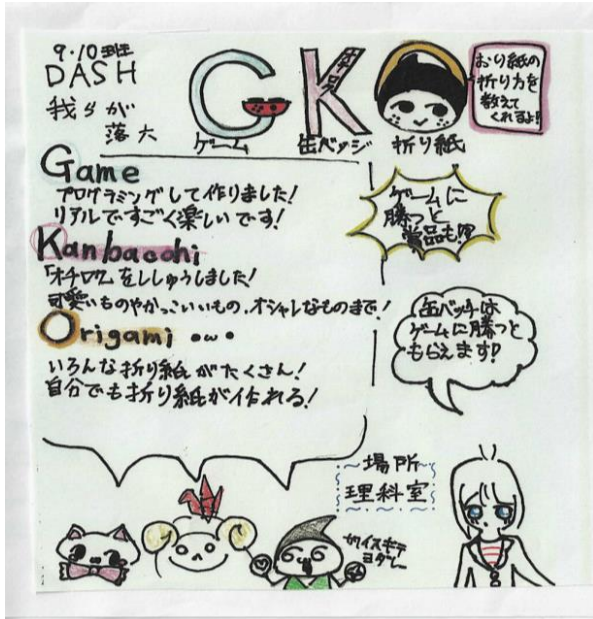 9・10班
DASH
我らが
落六
GKO
景品
ゲーム
缶バッジ
折り紙
おり紙の
折り方を
教えて
くれるよ!
Game
プログラミングして作りました!
リアルですごく楽しいです!
Kanbacchi
「オチロク」をししゅうしました!
可愛いものやかっこいいもの、オシャレなものまで!
Origami ・ω・
いろんな折り紙がたくさん!
自分でも折り紙が作れる!
ゲームに
勝つと
賞品も!?
缶バッチは
ゲームに勝つと
もらえます!?
場所
理科室
ヨダレー